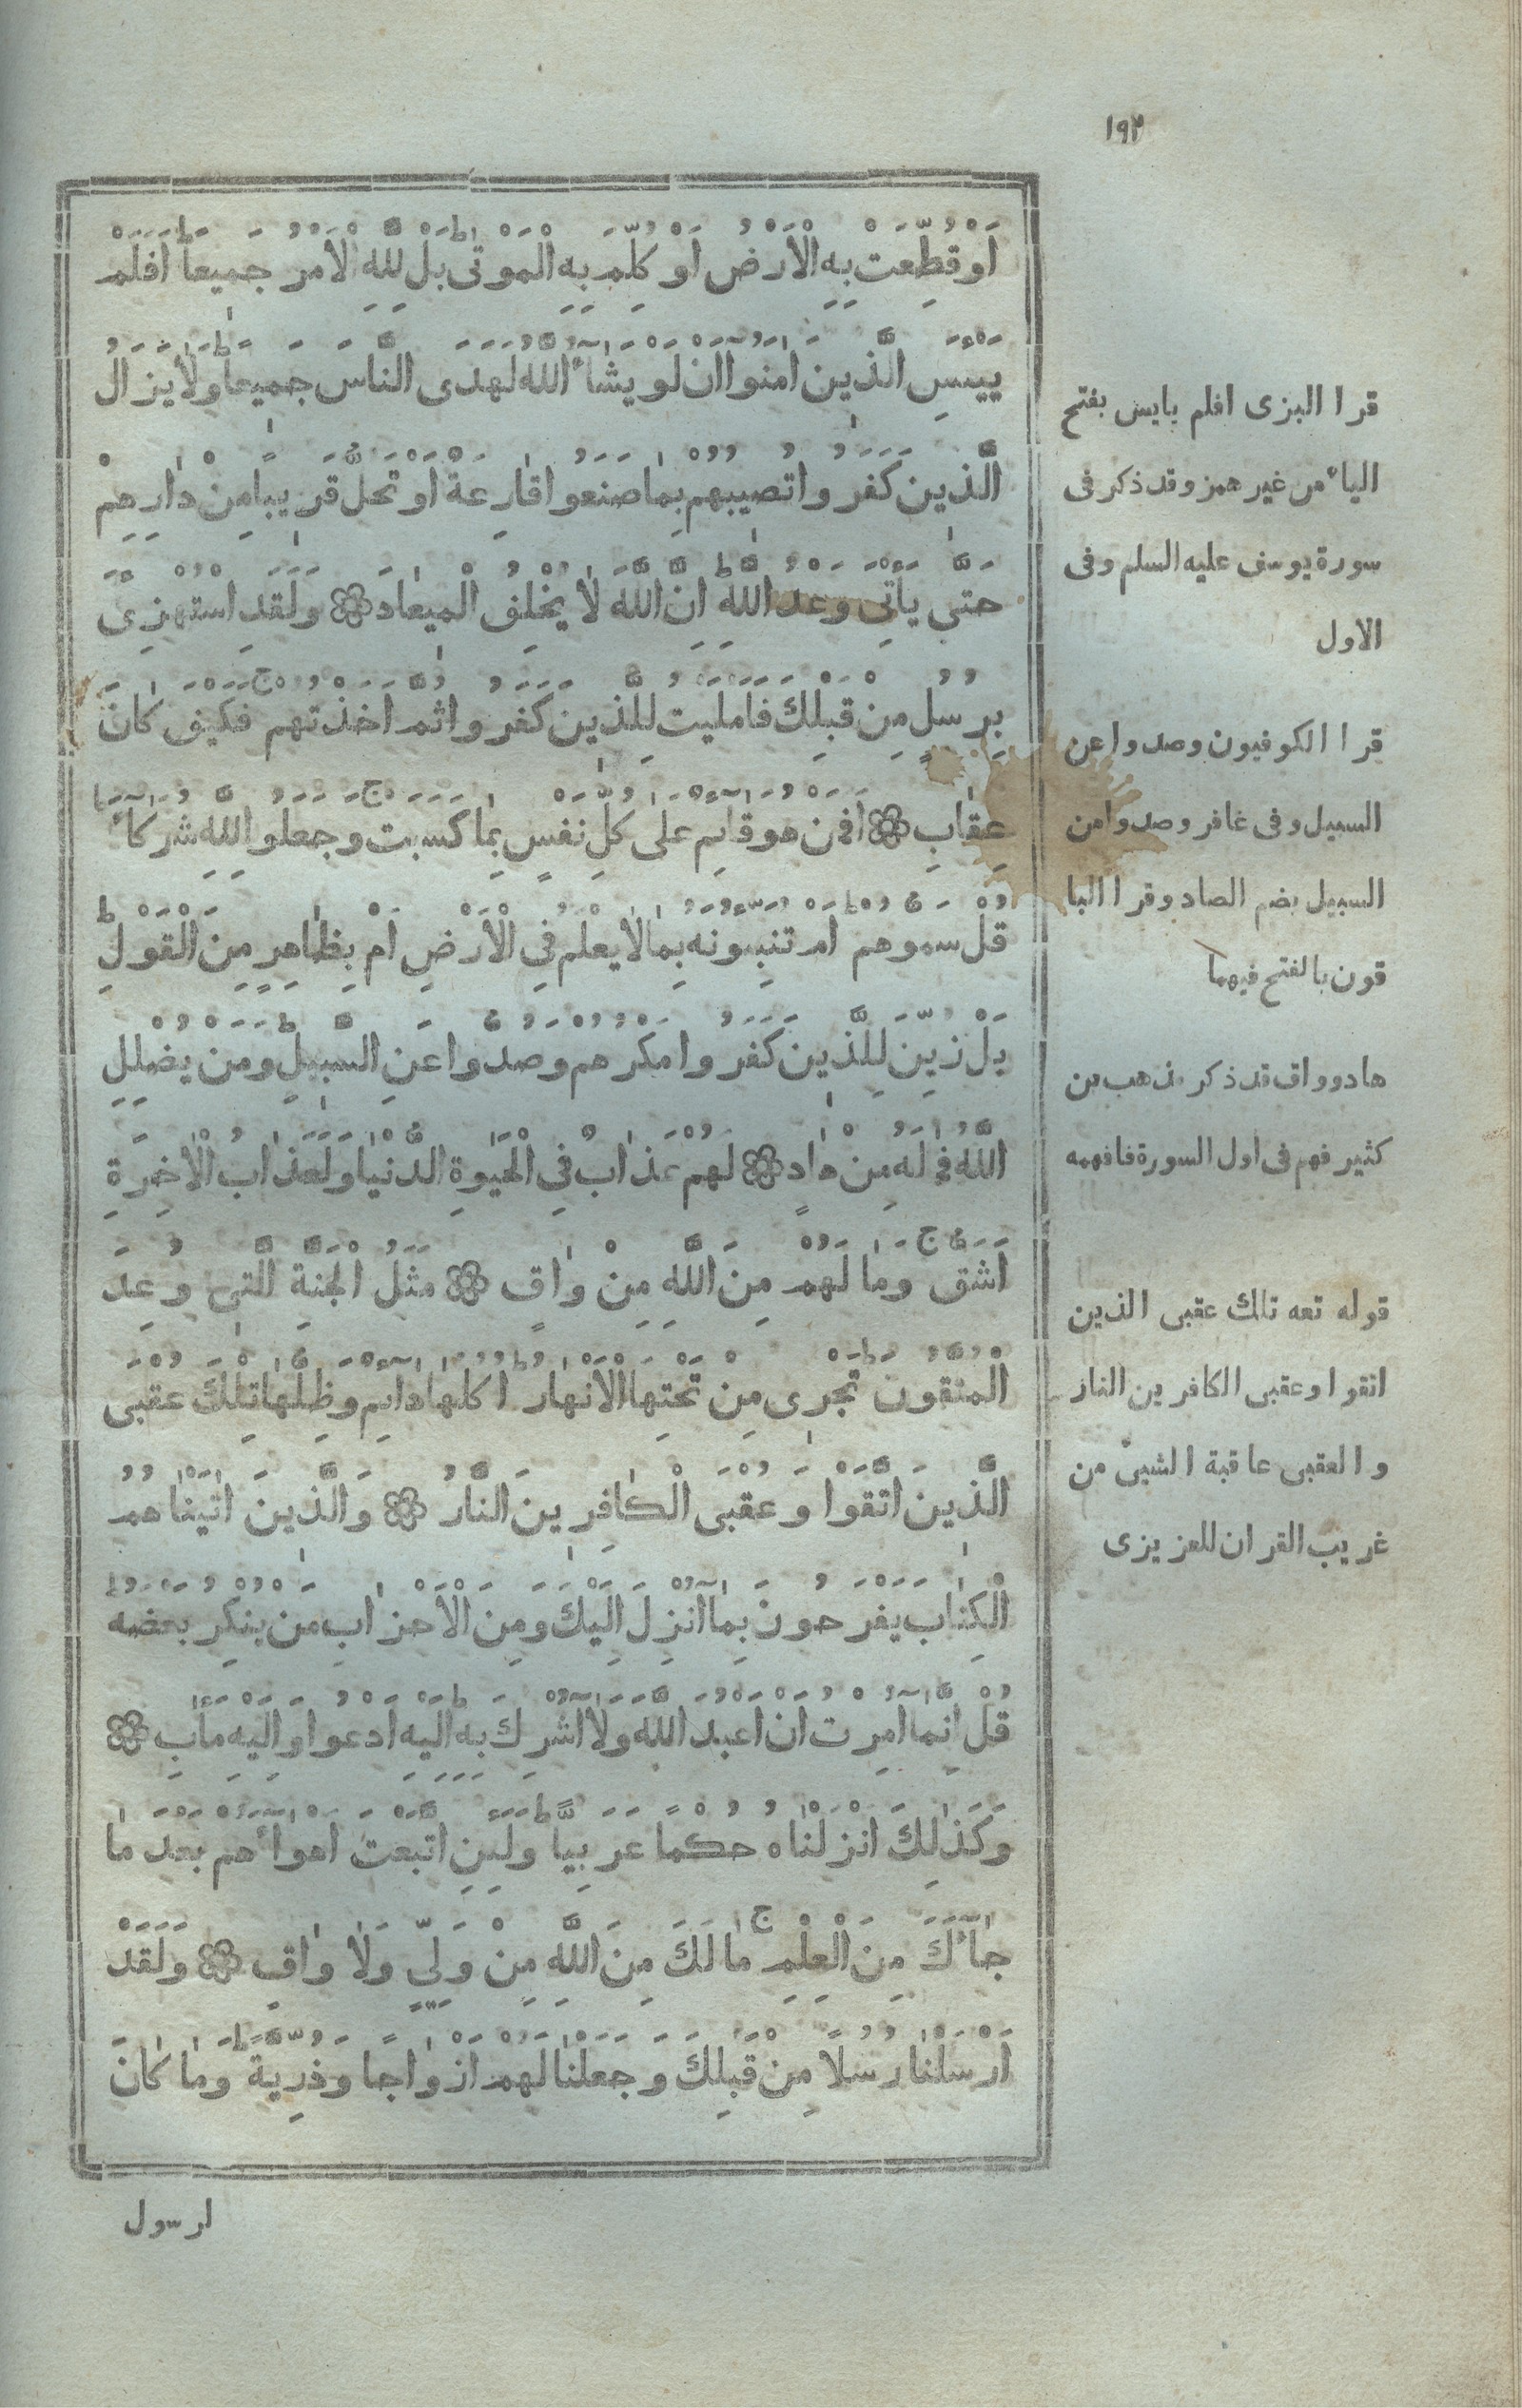 ١٩٢
اَوْ قُطِّعَتْ بِهِ الْاَرْضُ اَوْ كُلِّمَ بِهِ الْمَوْتٰى ط بَلْ لِلّٰهِ الْاَمْرُ جَمِيعًا ط اَفَلَمْ
يَيْـَٔسِ الَّذِينَ اٰمَنُوٓا اَنْ لَوْ يَشَآءُ اللّٰهُ لَهَدَى النَّاسَ جَمِيعًا ط وَلَا يَزَالُ
الَّذِينَ كَفَرُوا تُصِيبُهُمْ بِمَا صَنَعُوا قَارِعَةٌ اَوْ تَحُلُّ قَرِيبًا مِنْ دَارِهِمْ
حَتّٰى يَأْتِىَ وَعْدُ اللّٰهِ ط اِنَّ اللّٰهَ لَا يُخْلِفُ الْمِيعَادَ ۝ وَلَقَدِ اسْتُهْزِئَ
بِرُسُلٍ مِنْ قَبْلِكَ فَاَمْلَيْتُ لِلَّذِينَ كَفَرُوا ثُمَّ اَخَذْتُهُمْ ج فَكَيْفَ كَانَ
عِقَابِ ۝ اَفَمَنْ هُوَ قَآئِمٌ عَلٰى كُلِّ نَفْسٍ بِمَا كَسَبَتْ ج وَجَعَلُوا لِلّٰهِ شُرَكَآءَ ط
قُلْ سَمُّوهُمْ ط اَمْ تُنَبِّـُٔونَهُ بِمَا لَا يَعْلَمُ فِى الْاَرْضِ اَمْ بِظَاهِرٍ مِنَ الْقَوْلِ ط
بَلْ زُيِّنَ لِلَّذِينَ كَفَرُوا مَكْرُهُمْ وَصُدُّوا عَنِ السَّبِيلِ ط وَمَنْ يُضْلِلِ
اللّٰهُ فَمَا لَهُ مِنْ هَادٍ ۝ لَهُمْ عَذَابٌ فِى الْحَيٰوةِ الدُّنْيَا وَلَعَذَابُ الْاٰخِرَةِ
اَشَقُّ ج وَمَا لَهُمْ مِنَ اللّٰهِ مِنْ وَاقٍ ۝ مَثَلُ الْجَنَّةِ الَّتِى وُعِدَ
الْمُتَّقُونَ ط تَجْرِى مِنْ تَحْتِهَا الْاَنْهَارُ ط اُكُلُهَا دَآئِمٌ وَظِلُّهَا ط تِلْكَ عُقْبَى
الَّذِينَ اتَّقَوْا وَعُقْبَى الْكَافِرِينَ النَّارُ ۝ وَالَّذِينَ اٰتَيْنَاهُمُ
الْكِتَابَ يَفْرَحُونَ بِمَآ اُنْزِلَ اِلَيْكَ وَمِنَ الْاَحْزَابِ مَنْ يُنْكِرُ بَعْضَهُ ط
قُلْ اِنَّمَآ اُمِرْتُ اَنْ اَعْبُدَ اللّٰهَ وَلَآ اُشْرِكَ بِهِ ط اِلَيْهِ اَدْعُوا وَاِلَيْهِ مَاٰبِ ۝
وَكَذٰلِكَ اَنْزَلْنَاهُ حُكْمًا عَرَبِيًّا ط وَلَئِنِ اتَّبَعْتَ اَهْوَآءَهُمْ بَعْدَ مَا
جَآءَكَ مِنَ الْعِلْمِ ج مَا لَكَ مِنَ اللّٰهِ مِنْ وَلِيٍّ وَلَا وَاقٍ ۝ وَلَقَدْ
اَرْسَلْنَا رُسُلًا مِنْ قَبْلِكَ وَجَعَلْنَا لَهُمْ اَزْوَاجًا وَذُرِّيَّةً ط وَمَا كَانَ
لرسول
قرا البزى افلم يايس بفتح
الياء من غير همز وقد ذكر فى
سورة يوسف عليه السلم وفى
الاول
قرا الكوفيون وصدوا عن
السبيل وفى غافر وصدوا من
السبيل بضم الصاد وقرا البا
قون بالفتح فيهما
هاد وواق قد ذكر مذهب بن
كثير فهم فى اول السورة فافهمه
قوله تعه تلك عقبى الذين
اتقوا وعقبى الكافرين النار
والعقبى عاقبة الشىء من
غريب القران للعزيزى